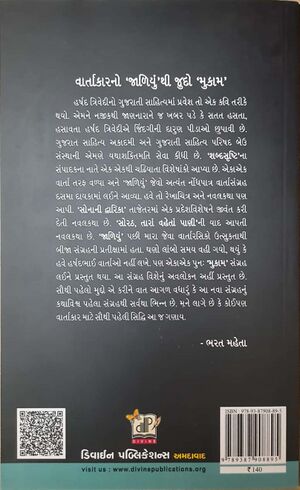 વાર્તાકારનો ‘જાળિયું’થી જુદો ‘મુકામ’
હર્ષદ ત્રિવેદીનો ગુજરાતી સાહિત્યમાં પ્રવેશ તો એક કવિ તરીકે
થયો. એમને નજીકથી જાણનારાને જ ખબર પડે કે સતત હસતા,
હસાવતા હર્ષદ ત્રિવેદીએ જિંદગીની દારુણ પીડાઓ છુપાવી છે.
ગુજરાત સાહિત્ય અકાદમી અને ગુજરાતી સાહિત્ય પરિષદ બેઉ
સંસ્થાની એમણે યથાશક્તિમતિ સેવા કીધી છે. ‘શબ્દસૃષ્ટિ’ના
સંપાદકના નાતે એક એકથી ચઢિયાતા વિશેષાંકો આપ્યા છે. એકાએક
વાર્તા તરફ વળ્યા અને ‘જાળિયું’ જેવો અત્યંત નોંધપાત્ર વાર્તાસંગ્રહ
દસમા દાયકામાં લઈને આવ્યા. હવે તો રેખાચિત્ર અને નવલકથા પણ
આપી. ‘સોનાની દ્વારિકા’ તાજેતરમાં એક પ્રદેશવિશેષને જીવંત કરી
દેતી નવલકથા. ‘સોરઠ, તારાં વહેતાં પાણી’ની યાદ આપતી
નવલકથા છે. ‘જાળિયું’ પછી મારા જેવા વાર્તારસિકો ઉત્સુકતાથી
બીજા સંગ્રહની પ્રતીક્ષામાં હતા. ઘણો લાંબો સમય વહી ગયો. થયું કે
હવે હર્ષદભાઈ વાર્તાઓ નહીં લખે. પણ એકાએક પુનઃ ‘મુકામ’ સંગ્રહ
લઈને પ્રસ્તુત થયા. આ સંગ્રહ વિશેનું અવલોકન અહીં પ્રસ્તુત છે.
સૌથી પહેલો મુદ્દો એ કરીને વાત આગળ વધારું કે આ નવા સંગ્રહનું
કથાવિશ્વ પહેલા સંગ્રહથી સર્વથા ભિન્ન છે. મને લાગે છે કે કોઈપણ
વાર્તાકાર માટે સૌથી પહેલી સિદ્ધિ આ જ ગણાય.
- ભરત મહેતા
dP
DIVINE
ડિવાઈન પબ્લિકેશન્સ અમદાવાદ
visit us : www.divinepublications.org
ISBN : 978-93-87908-89-5
9 789387 908895
₹ 140